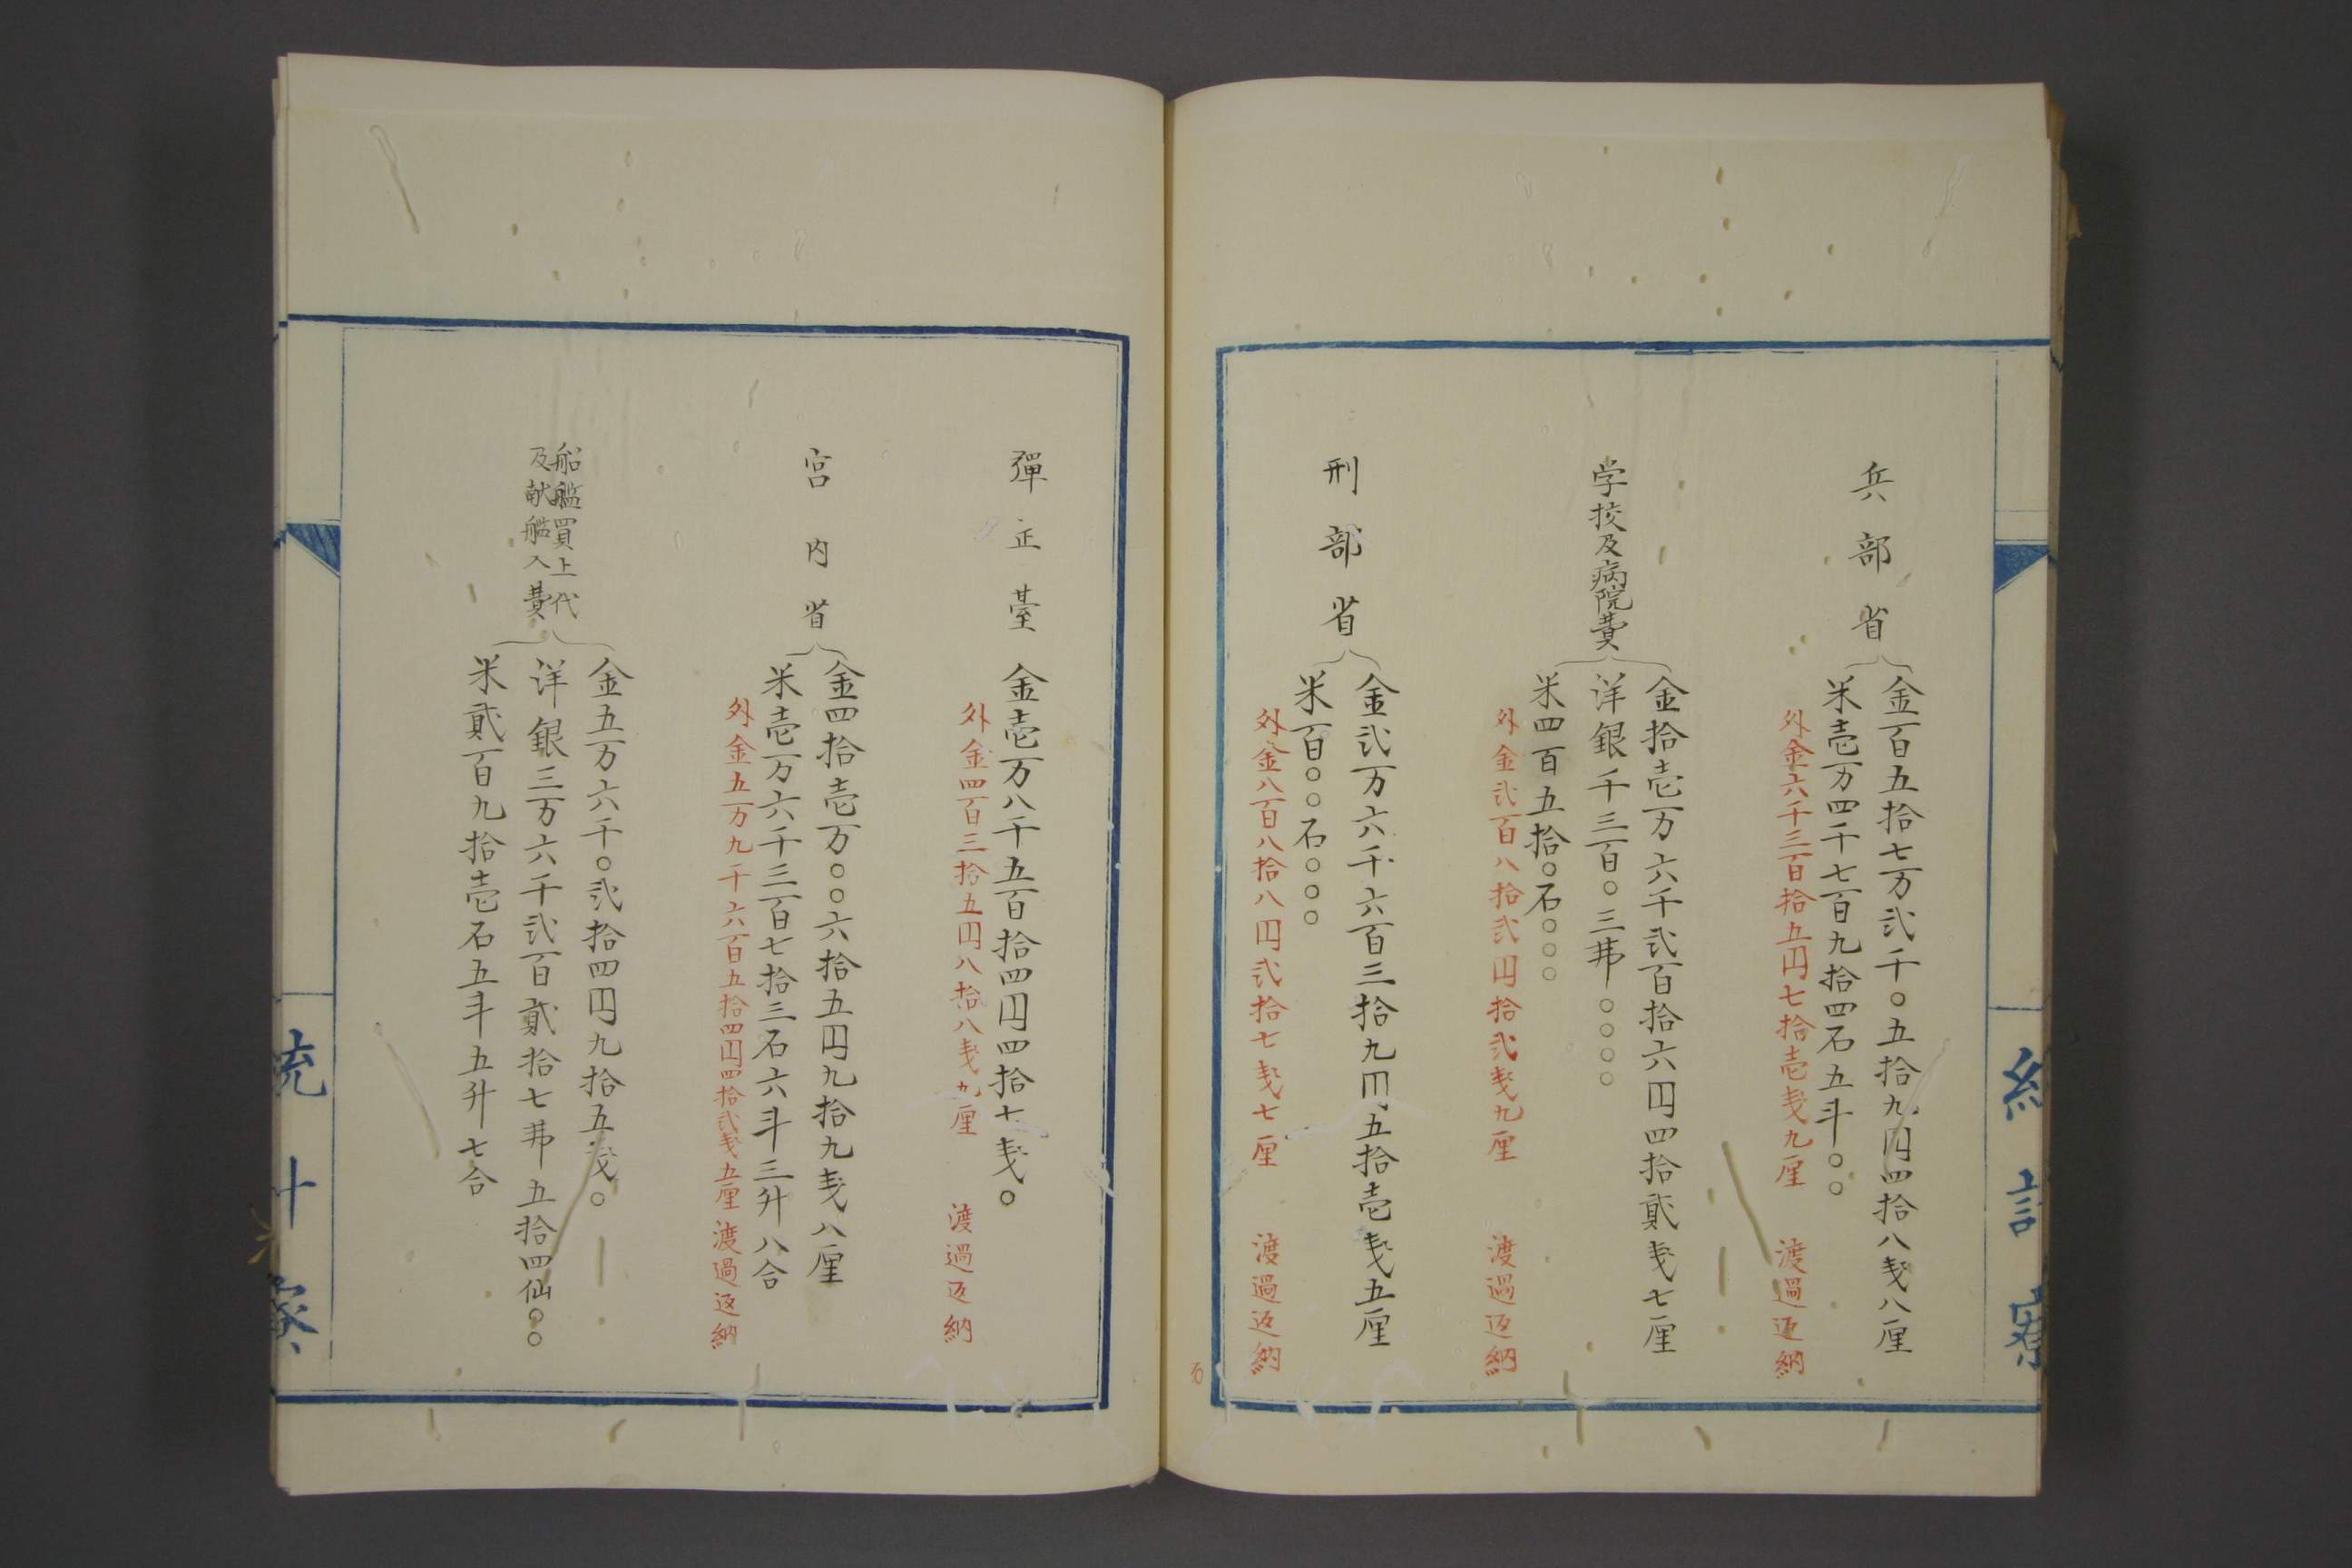 兵部省
金百五拾七万弐千〇五拾九円四拾八戔八厘
米壱万四千七百九拾四石五斗〇〇
外金六千三百拾五円七拾壱戔九厘 渡過返納
学挍及病院費
金拾壱万六千弐百拾六円四拾貳戔七厘
洋銀千三百〇三弗〇〇〇〇
米四百五拾〇石〇〇〇
外金弐百八拾弐円拾弐戔九厘 渡過返納
刑部省
金弐万六千六百三拾九円五拾壱戔五厘
米百〇〇石〇〇〇
外金八百八拾八円弐拾七戔七厘 渡過返納
彈正臺 金壱万八千五百拾四円四拾七戔〇
外金四百三拾五円八拾八戔九厘 渡過返納
宮内省
金四拾壱万〇〇六拾五円九拾九戔八厘
米壱万六千三百七拾三石六斗三升八合
外金五万九千六百五拾四円四拾弐戔五厘 渡過返納
船艦買上代
及献艦入費
金五万六千〇弐拾四円九拾五戔〇
洋銀三万六千弐百貳拾七弗五拾四仙〇〇
米貳百九拾壱石五斗五升七合